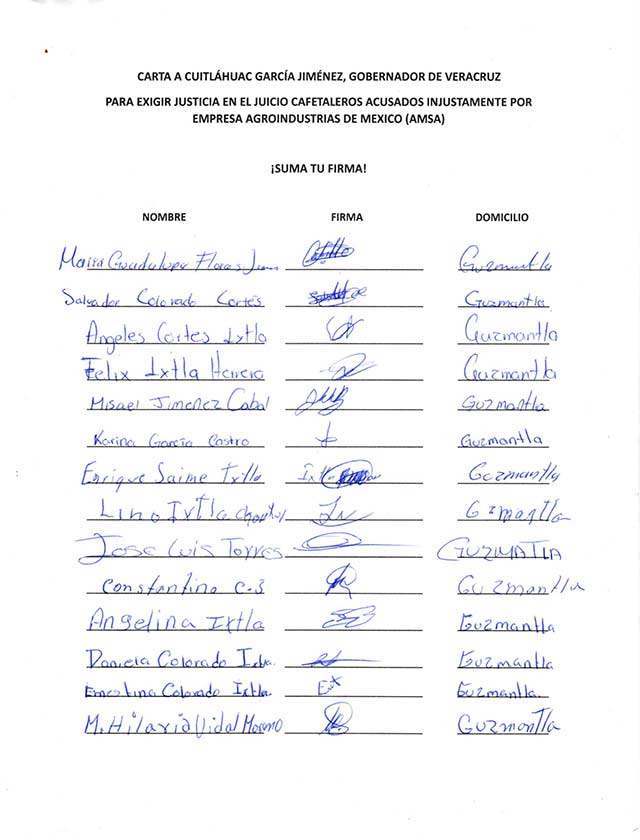 CARTA A CUITLÁHUAC GARCÍA JIMÉNEZ, GOBERNADOR DE VERACRUZ
PARA EXIGIR JUSTICIA EN EL JUICIO CAFETALEROS ACUSADOS INJUSTAMENTE POR
EMPRESA AGROINDUSTRIAS DE MEXICO (AMSA)
¡SUMA TU FIRMA!
NOMBRE FIRMA DOMICILIO
Maria Guadalupe Flores Guzmantla
Salvador Colorado Cortés Guzmantla
Angeles Cortes Ixtla Guzmantla
Felix Ixtla Herrera Guzmantla
Misael Jimenez Cabal Guzmantla
Karina García Castro Guzmantla
Enrique Saime Ixtla Guzmantla
Lino Ixtla
Jose Luis Torres GUZMATLA
Constantino C.S Guzmantla
Angelina Ixtla Guzmantla
Daniela Colorado Ixtla. Guzmantla
Ernestina Colorado Ixtla. Guzmantla.
M. Hilaria Vidal Moreno Guzmantla